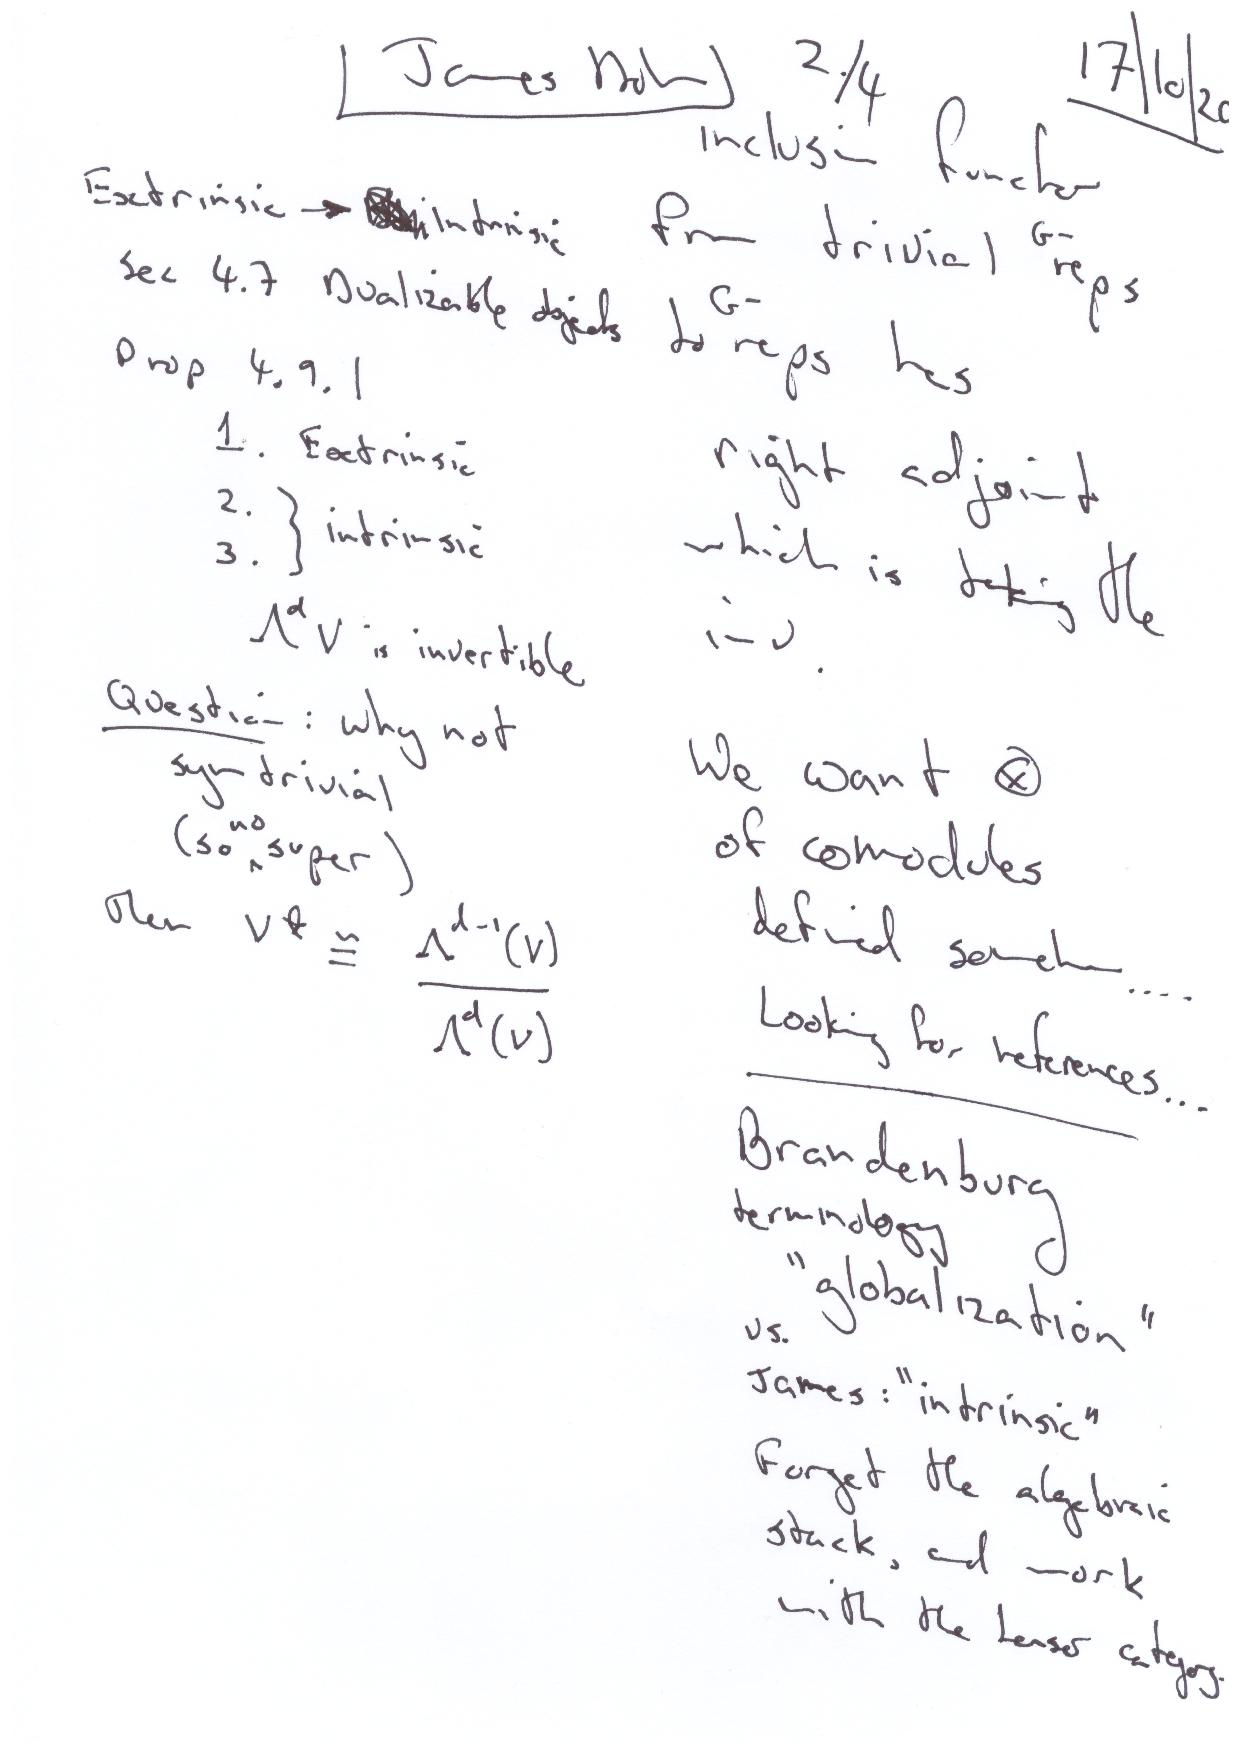 James 2/4 17/10/20
Extrinsic → intrinsic
Sec 4.7 Dualizable objects
Prop 4.9.1
1. Extrinsic
2.
3. } intrinsic
Λᵈ V is invertible
Question: why not
sym trivial
(so no super)
then V* ≅ Λᵈ⁻¹(V)
Λᵈ(V)
inclusion functor
from trivial G-reps
to G-reps has
right adjoint
which is taking the
inv.
We want ⊗
of comodules
defined somewhere....
Looking for references...
Brandenburg
terminology
"globalization"
vs.
James: "intrinsic"
Forget the algebraic
stack, and work
with the tensor category.